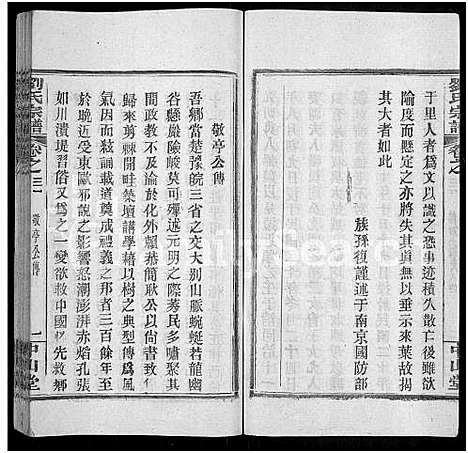 劉氏宗譜
卷之三
于里人者爲文以識之恐事迹積久散亡後雖欲
險度而懸定之亦將失其直無以垂示來葉故揭
其大者如此
族孫復謹述于南京國防部
中山堂
敬亭公傳
吾鄉當楚豫皖三省之交大別山脈蜿蜒若龍幽
谷縣巖險峻莫可殫述元明之際莠民多嘯聚其
間政教不及淪於化外飄恭簡耿公以尚書致仕
歸來剪棘開畦築壇講學藉以樹之典型傳爲風
氣因而絃誦載道蔚然禮義之邦者三百餘年至
於晩近受東歐邪說之影響怒潮澎湃赤焰孔張
如川潰堤習俗又爲之一變欲救中國 先救鄉
劉氏宗譜
卷之三
敬亭公傳
一
中山堂